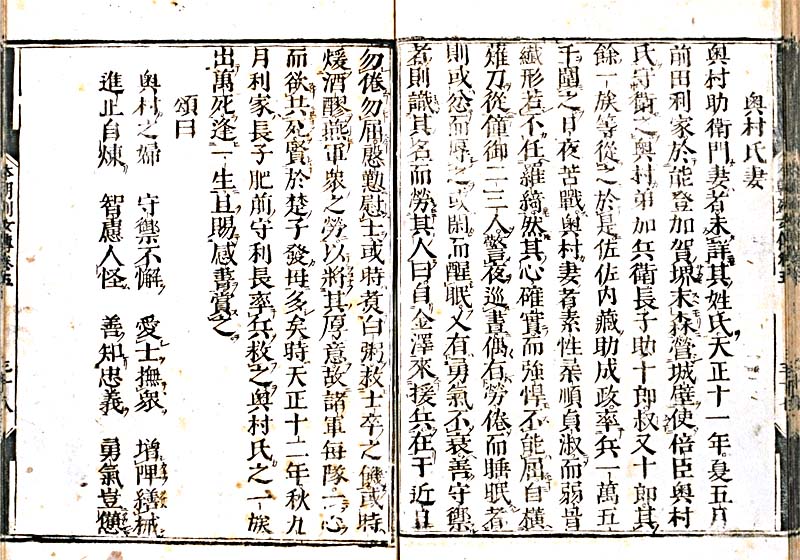 奧村氏妻
奧村助衛門妻者未詳其姓氏天正十一年夏五月
前田利家於能登加賀堺末森營城壁使倍臣奧村
氏守衛之奧村弟加兵衛長子助十郎叔又十郎其
餘一族等從之於是佐佐内藏助成政率兵一萬五
千圍之日夜苦戰奧村妻者素性柔順貞淑而弱骨
纎形若不任羅綺然其心確實而強悍不能屈自横
薙刀從僮御二三人警夜巡晝偶有勞倦而睡眠者
則或怂而辱之或閑而醒眠又有勇氣不衰善守禦
者則識其名而勞其人曰自金澤來援兵在于近日
勿倦勿屈慇懃慰士或時煑白粥救士卒之饑或時
煖酒醪燕軍衆之勞以將其厚意故諸軍每隊一心
而欲共死賢於楚子發母多矣時天正十二年秋九
月利家長子肥前守利長率兵救之奧村氏之一族
出萬死逢一生且賜感書賞之
頌曰
奧村之婦 守禦不懈 愛士撫衆 增陴繕械
進止自煉 智慮人怪 善知忠義 勇氣豈憊